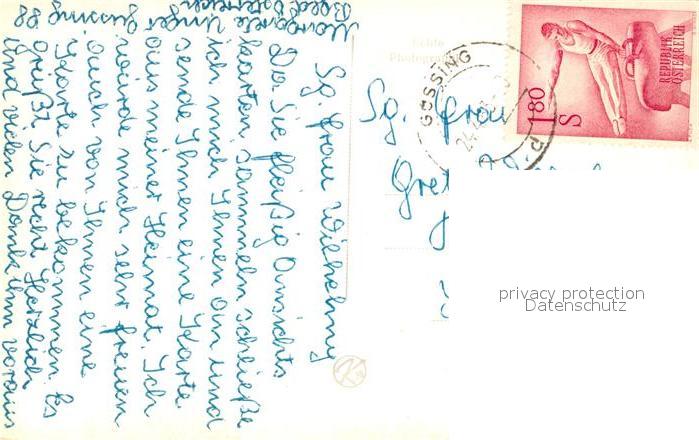 Margarete Unger
Sg. Frau Wilhelmy
Da Sie fleißig Ansichts
karten sammeln schließe
ich mich Ihnen an und
sende Ihnen eine Karte
aus meiner Heimat. Ich
würde mich sehr freuen
auch von Ihnen eine
Karte zu bekommen. Es
grüßt Sie recht Herzlich
und vielen Dank im voraus
Echte
Sg. Frau
GÖSSING
1.80
S
REPUBLIK
ÖSTERREICH
privacy protection
Datenschutz